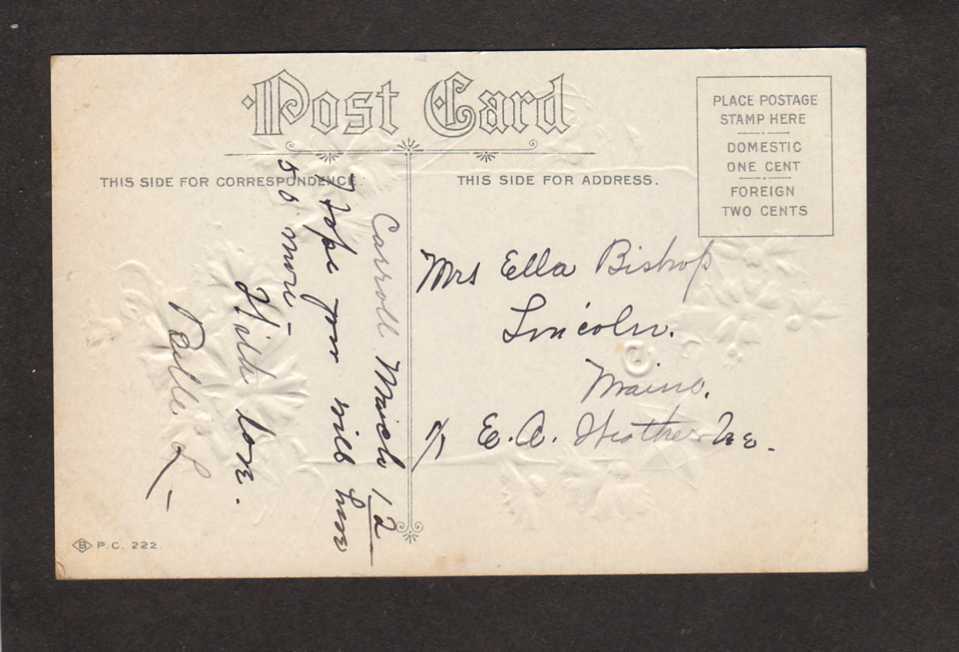 Post Card
THIS SIDE FOR CORRESPONDENCE
THIS SIDE FOR ADDRESS.
PLACE POSTAGE
STAMP HERE
DOMESTIC
ONE CENT
FOREIGN
TWO CENTS
Carroll March 12
Hope you will have
50 more -
With love.
L -
Mrs Ella Bishop
Lincoln.
Maine.
E. A.
B P.C. 222.